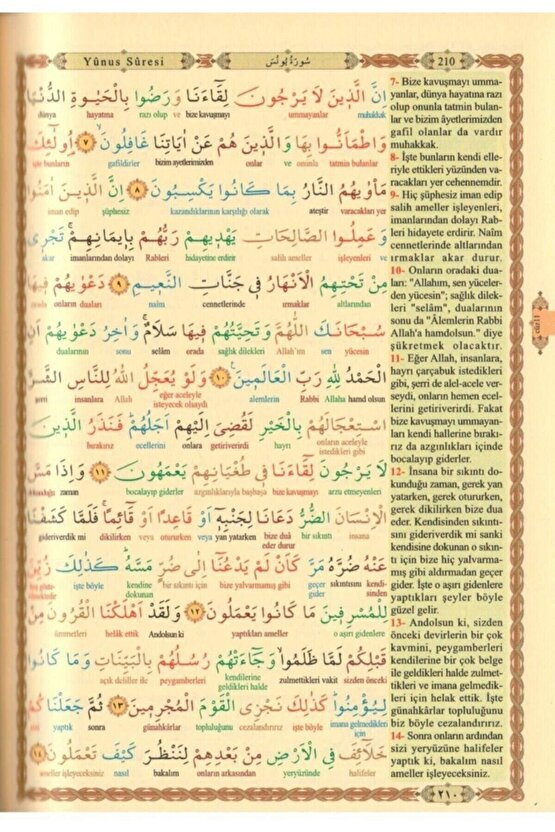 Yûnus Sûresi
سُورَةُ يُونُسَ
210
اِنَّ الَّذ۪ينَ لَا يَرْجُونَ لِقَٓاءَنَا وَرَضُوا بِالْحَيٰوةِ الدُّنْيَا
muhakkak ummayanlar bize kavuşmayı razı olup ve hayatına dünya
وَاطْمَاَنُّوا بِهَا وَالَّذ۪ينَ هُمْ عَنْ اٰيَاتِنَا غَافِلُونَۙ ﴿٧﴾ اُو۬لٰٓئِكَ
tatmin bulanlar ve onunla bizim âyetlerimizden gafildirler işte bunların
مَأْوٰيهُمُ النَّارُ بِمَا كَانُوا يَكْسِبُونَ ﴿٨﴾ اِنَّ الَّذ۪ينَ اٰمَنُوا
varacakları yer ateştir kazandıklarının karşılığı olarak şüphesiz iman edip
وَعَمِلُوا الصَّالِحَاتِ يَهْد۪يهِمْ رَبُّهُمْ بِا۪يمَانِهِمْۚ تَجْر۪ي
işleyenleri ve salih ameller hidayetine erdirir Rableri imanlarından dolayı akar
مِنْ تَحْتِهِمُ الْاَنْهَارُ ف۪ي جَنَّاتِ النَّع۪يمِ ﴿٩﴾ دَعْوٰيهُمْ ف۪يهَا
altlarından ırmaklar cennetlerinde naîm onların duaları orada
سُبْحَانَكَ اللّٰهُمَّ وَتَحِيَّتُهُمْ ف۪يهَا سَلَامٌۚ وَاٰخِرُ دَعْوٰيهُمْ اَنِ
yücesin sen Allah'ım sağlık dilekleri orada selâm sonu dualarının
الْحَمْدُ لِلّٰهِ رَبِّ الْعَالَم۪ينَ ﴿١٠﴾ وَلَوْ يُعَجِّلُ اللّٰهُ لِلنَّاسِ الشَّرَّ
Allaha hamd olsun Rabbi alemlerin eğer aceleyle isteyecek olsaydı Allah insanlara şerri
اسْتِعْجَالَهُمْ بِالْخَيْرِ لَقُضِيَ اِلَيْهِمْ اَجَلُهُمْۜ فَنَذَرُ الَّذ۪ينَ
onların aceleyle istedikleri gibi hayrı getiriverirdi onlara ecellerini bırakırız
لَا يَرْجُونَ لِقَٓاءَنَا ف۪ي طُغْيَانِهِمْ يَعْمَهُونَ ﴿١١﴾ وَاِذَا مَسَّ
arzu etmeyenleri bize kavuşmayı azgınlıklarıyla başbaşa bocalayıp giderler zaman dokunduğu
الْاِنْسَانَ الضُّرُّ دَعَانَا لِجَنْبِه۪ٓ اَوْ قَاعِدًا اَوْ قَٓائِمًاۚ فَلَمَّا كَشَفْنَا
insana bir sıkıntı bize duâ eder durur yan yatarken veya otururken veya dikilirken gideriverdik mi
عَنْهُ ضُرَّهُ مَرَّ كَاَنْ لَمْ يَدْعُنَٓا اِلٰى ضُرٍّ مَسَّهُۜ كَذٰلِكَ زُيِّنَ
kendisinden sıkıntısını geçer gider bize yalvarmamış gibi bir sıkıntı için kendine dokunan işte böyle
لِلْمُسْرِف۪ينَ مَا كَانُوا يَعْمَلُونَ ﴿١٢﴾ وَلَقَدْ اَهْلَكْنَا الْقُرُونَ مِنْ
o aşırı gidenlere yaptıkları ameller Andolsun ki helâk ettik ümmetleri
قَبْلِكُمْ لَمَّا ظَلَمُواۙ وَجَٓاءَتْهُمْ رُسُلُهُمْ بِالْبَيِّنَاتِ وَمَا كَانُوا
sizden önceki zulmettikleri vakit kendilerine geldikleri halde peygamberleri açık deliller ile
لِيُؤْمِنُواۜ كَذٰلِكَ نَجْزِي الْقَوْمَ الْمُجْرِم۪ينَ ﴿١٣﴾ ثُمَّ جَعَلْنَاكُمْ
imana gelmedikleri için işte böyle cezalandırırız topluluğunu günahkârlar sonra yaptık sizi
خَلَٓائِفَ فِي الْاَرْضِ مِنْ بَعْدِهِمْ لِنَنْظُرَ كَيْفَ تَعْمَلُونَ ﴿١٤﴾
halifeler yeryüzünde onların arkasından bakalım nasıl ameller işleyeceksiniz
7- Bize kavuşmayı umma-
yanlar, dünya hayatına razı
olup onunla tatmin bulan-
lar ve bizim âyetlerimizden
gafil olanlar da vardır
muhakkak.
8- İşte bunların kendi elle-
riyle ettikleri yüzünden va-
racakları yer cehennemdir.
9- Hiç şüphesiz iman edip
salih ameller işleyenleri,
imanlarından dolayı Rab-
leri hidayete erdirir. Naîm
cennetlerinde altlarından
ırmaklar akar durur.
10- Onların oradaki dua-
ları: "Allahım, sen yüceler-
den yücesin"; sağlık dilek-
leri "selâm", dualarının
sonu da "Âlemlerin Rabbi
Allah'a hamdolsun." diye
şükretmek olacaktır.
11- Eğer Allah, insanlara,
hayrı çarçabuk istedikleri
gibi, şerri de alel-acele ver-
seydi, onların hemen ecel-
lerini getiriverirdi. Fakat
bize kavuşmayı ummayan-
ları kendi hallerine bırakı-
rız da azgınlıkları içinde
bocalayıp giderler.
12- İnsana bir sıkıntı do-
kunduğu zaman, gerek yan
yatarken, gerek otururken,
gerek dikilirken bize dua
eder. Kendisinden sıkıntı-
sını gideriverdik mi sanki
kendisine dokunan o sıkın-
tı için bize hiç yalvarma-
mış gibi aldırmadan geçer
gider. İşte o aşırı gidenlere
yaptıkları şeyler böyle
güzel gelir.
13- Andolsun ki, sizden
önceki devirlerden bir çok
kavmini, peygamberleri
kendilerine bir çok belge
ile geldikleri halde zulmet-
tikleri ve imana gelmedik-
leri için helak ettik. İşte
günahkârlar topluluğunu
biz böyle cezalandırırız.
14- Sonra onların ardından
sizi yeryüzüne halifeler
yaptık ki, bakalım nasıl
ameller işleyeceksiniz.
cüz:11
٢١٠